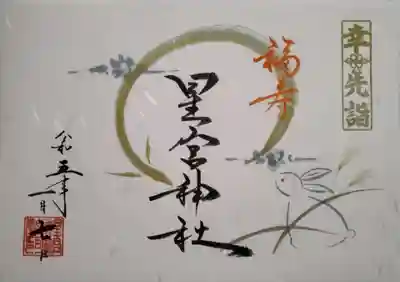 幸先詣
福寿
星宮神社
令和五年
一月七日